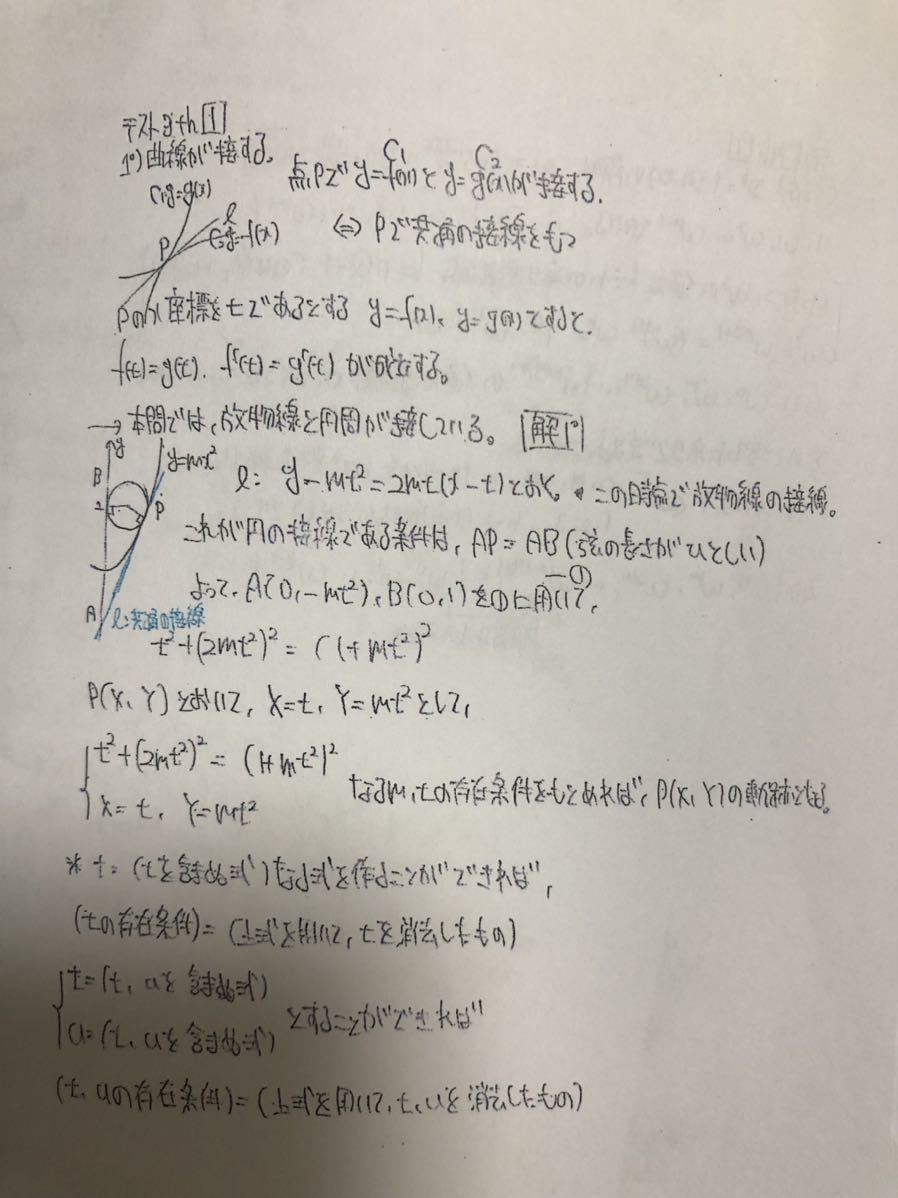 テストゼミ th [1]
1°) 曲線が接する。
点Pで y=f(x) と y=g(x)が接する.
C1 C2
C1:y=g(x)
l
C2:y=f(x)
P
⇔ Pで共通の接線をもつ
Pのx座標をtであるとする y=f(x), y=g(x)とすると,
f(t)=g(t). f'(t)=g'(t) が成立する。
→ 本問では, 放物線と円周が接している。 [解1°]
y
B
y=mx²
2
P
A
l:共通の接線
l: y-mt²=2mt(x-t)とおく。 * この時点で放物線の接線。
これが円の接線である条件は, AP=AB (弦の長さがひとしい)
―①
よって, A(0,-mt²), B(0,1)を①に用いて,
t²+(2mt²)²=(1+mt²)²
P(X, Y)とおいて, X=t, Y=mt²として,
t²+(2mt²)²=(1+mt²)²
X=t, Y=mt²
なるm, tの存在条件をもとめれば, P(X, Y)の軌跡となる。
* t=(tを含まぬ式)なる式を作ることができれば,
(tの存在条件)=(上式を用いて, tを消去したもの)
t=(t, uを含まぬ式)
u=(t, uを含まぬ式)
とすることができれば
(t, uの存在条件)=(上式を用いて, t, uを消去したもの)